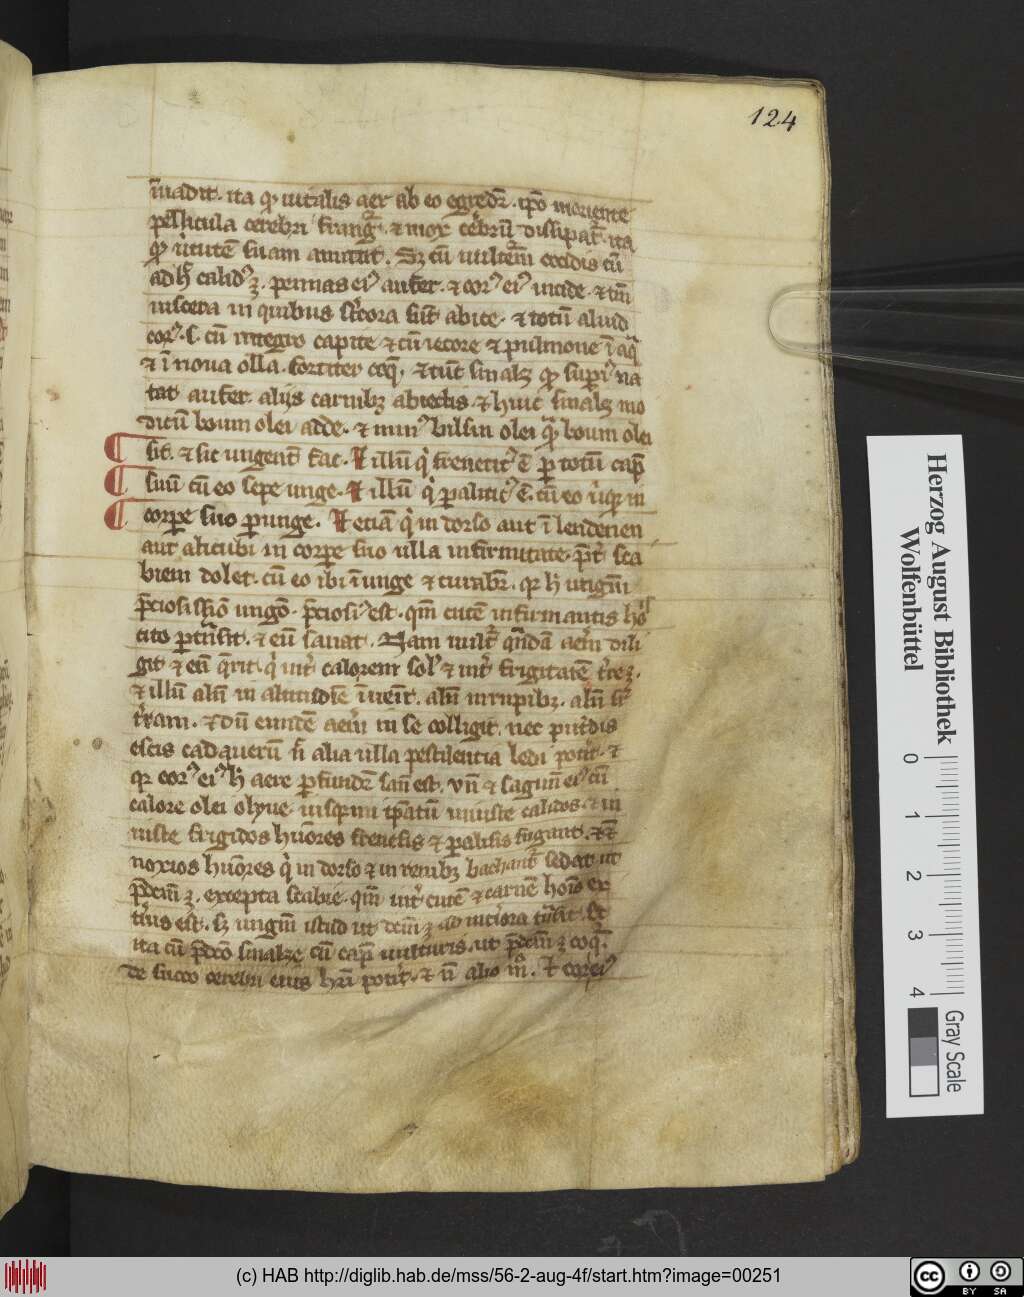 124
madit. ita qͥ uitalis aer ab eo egredr̄. ip̄o moriente
pellicula cerebri frangr̄. ⁊ mox cēbrū dissipat̄. ita
ꝙ ut̄utē suam amittit. Sꝫ cū uultem̄ occidis cū
adh̄ calidꝰ ꝫ. pennas eiꝰ aufer. ⁊ corꝰ eiꝰ incide. ⁊ tm̄
uiscera in quibus st̄cora sūt abice. ⁊ totū aliud
corꝰ. s. cū integro capite ⁊ cū iecore ⁊ pulmone ī aq̄
⁊ ī noua olla. fortiter coq̄. ⁊ tūc sinalꝫ
tat aufer. alijs carnibꝫ abiectis. ⁊ huic sinalꝫ mo
dicū boum olei adde. ⁊ minꝰ bilsin olei q̄ boum olei
sit. ⁊ sic ungent̄ fac. illū q̄ freneticꝰ ē ꝑ totū cap̄
suū cū eo sepe unge. ⁊ illū q̄ paliticꝰ ē. cū eo in
corpe suo ꝑunge. etiā q̄ in dorso aut ī lendenen
aut alicubi in corpe suo ulla infirmitate. p̄t sca
biem dolet. cū eo ibi īunge ⁊ curabr̄. qr h̄ ungm̄
p̄ciosissīō ungō. p̄ciosiꝰ est. qm̄ cutē infirmantis
cito ꝑtn̄sit. ⁊ eū sanat. Nam uult̄ qundā aem̄ dili
git ⁊ eū q̄rit. q̄ int̄ calorem sol̄ ⁊ int̄ frigitatē t̄reꝫ.
⁊ illū aln̄ in altitudīē īueīt. aln̄ in rupibꝫ. aln̄ sr̄
t̄ram. ⁊ dū eundē aem̄ in se colligit. nec put̄dis
escis cadauerū n̄ alia ulla pestilentia ledi potit. ⁊
qr corꝰ eiꝰ h̄ aere ꝑfundr̄ san̄ est. vn̄ ⁊ sagim̄ eiꝰ cū
calore olei olyue. iniuste calidos. ⁊ in
iuste frigidos hūores frenesis ⁊ paralisis fugant.
noxios hūores q̄ in dorso ⁊ in renibꝫ bachant̄ sedat. ut
p̄dcm̄ ꝫ. excepta scabie. qm̄ int̄ cutē ⁊ carnē hoīs ex
t̄ius est. sꝫ ungm̄ istud ut dcm̄ ꝫ ad int̄iora t̄nsit. Et
ita cū p̄dcō sinalꝫe cū cap̄ uulturis. ut p̄dcm̄ ꝫ coq̄r̄.
de succo cerebri eius hr̄i potit̄. ⁊ n̄ alio m̄.
Herzog August Bibliothek
Wolfenbüttel
0 1 2 3 4
Gray Scale
(c) HAB http://diglib.hab.de/mss/56-2-aug-4f/start.htm?image=00251
cc BY SA